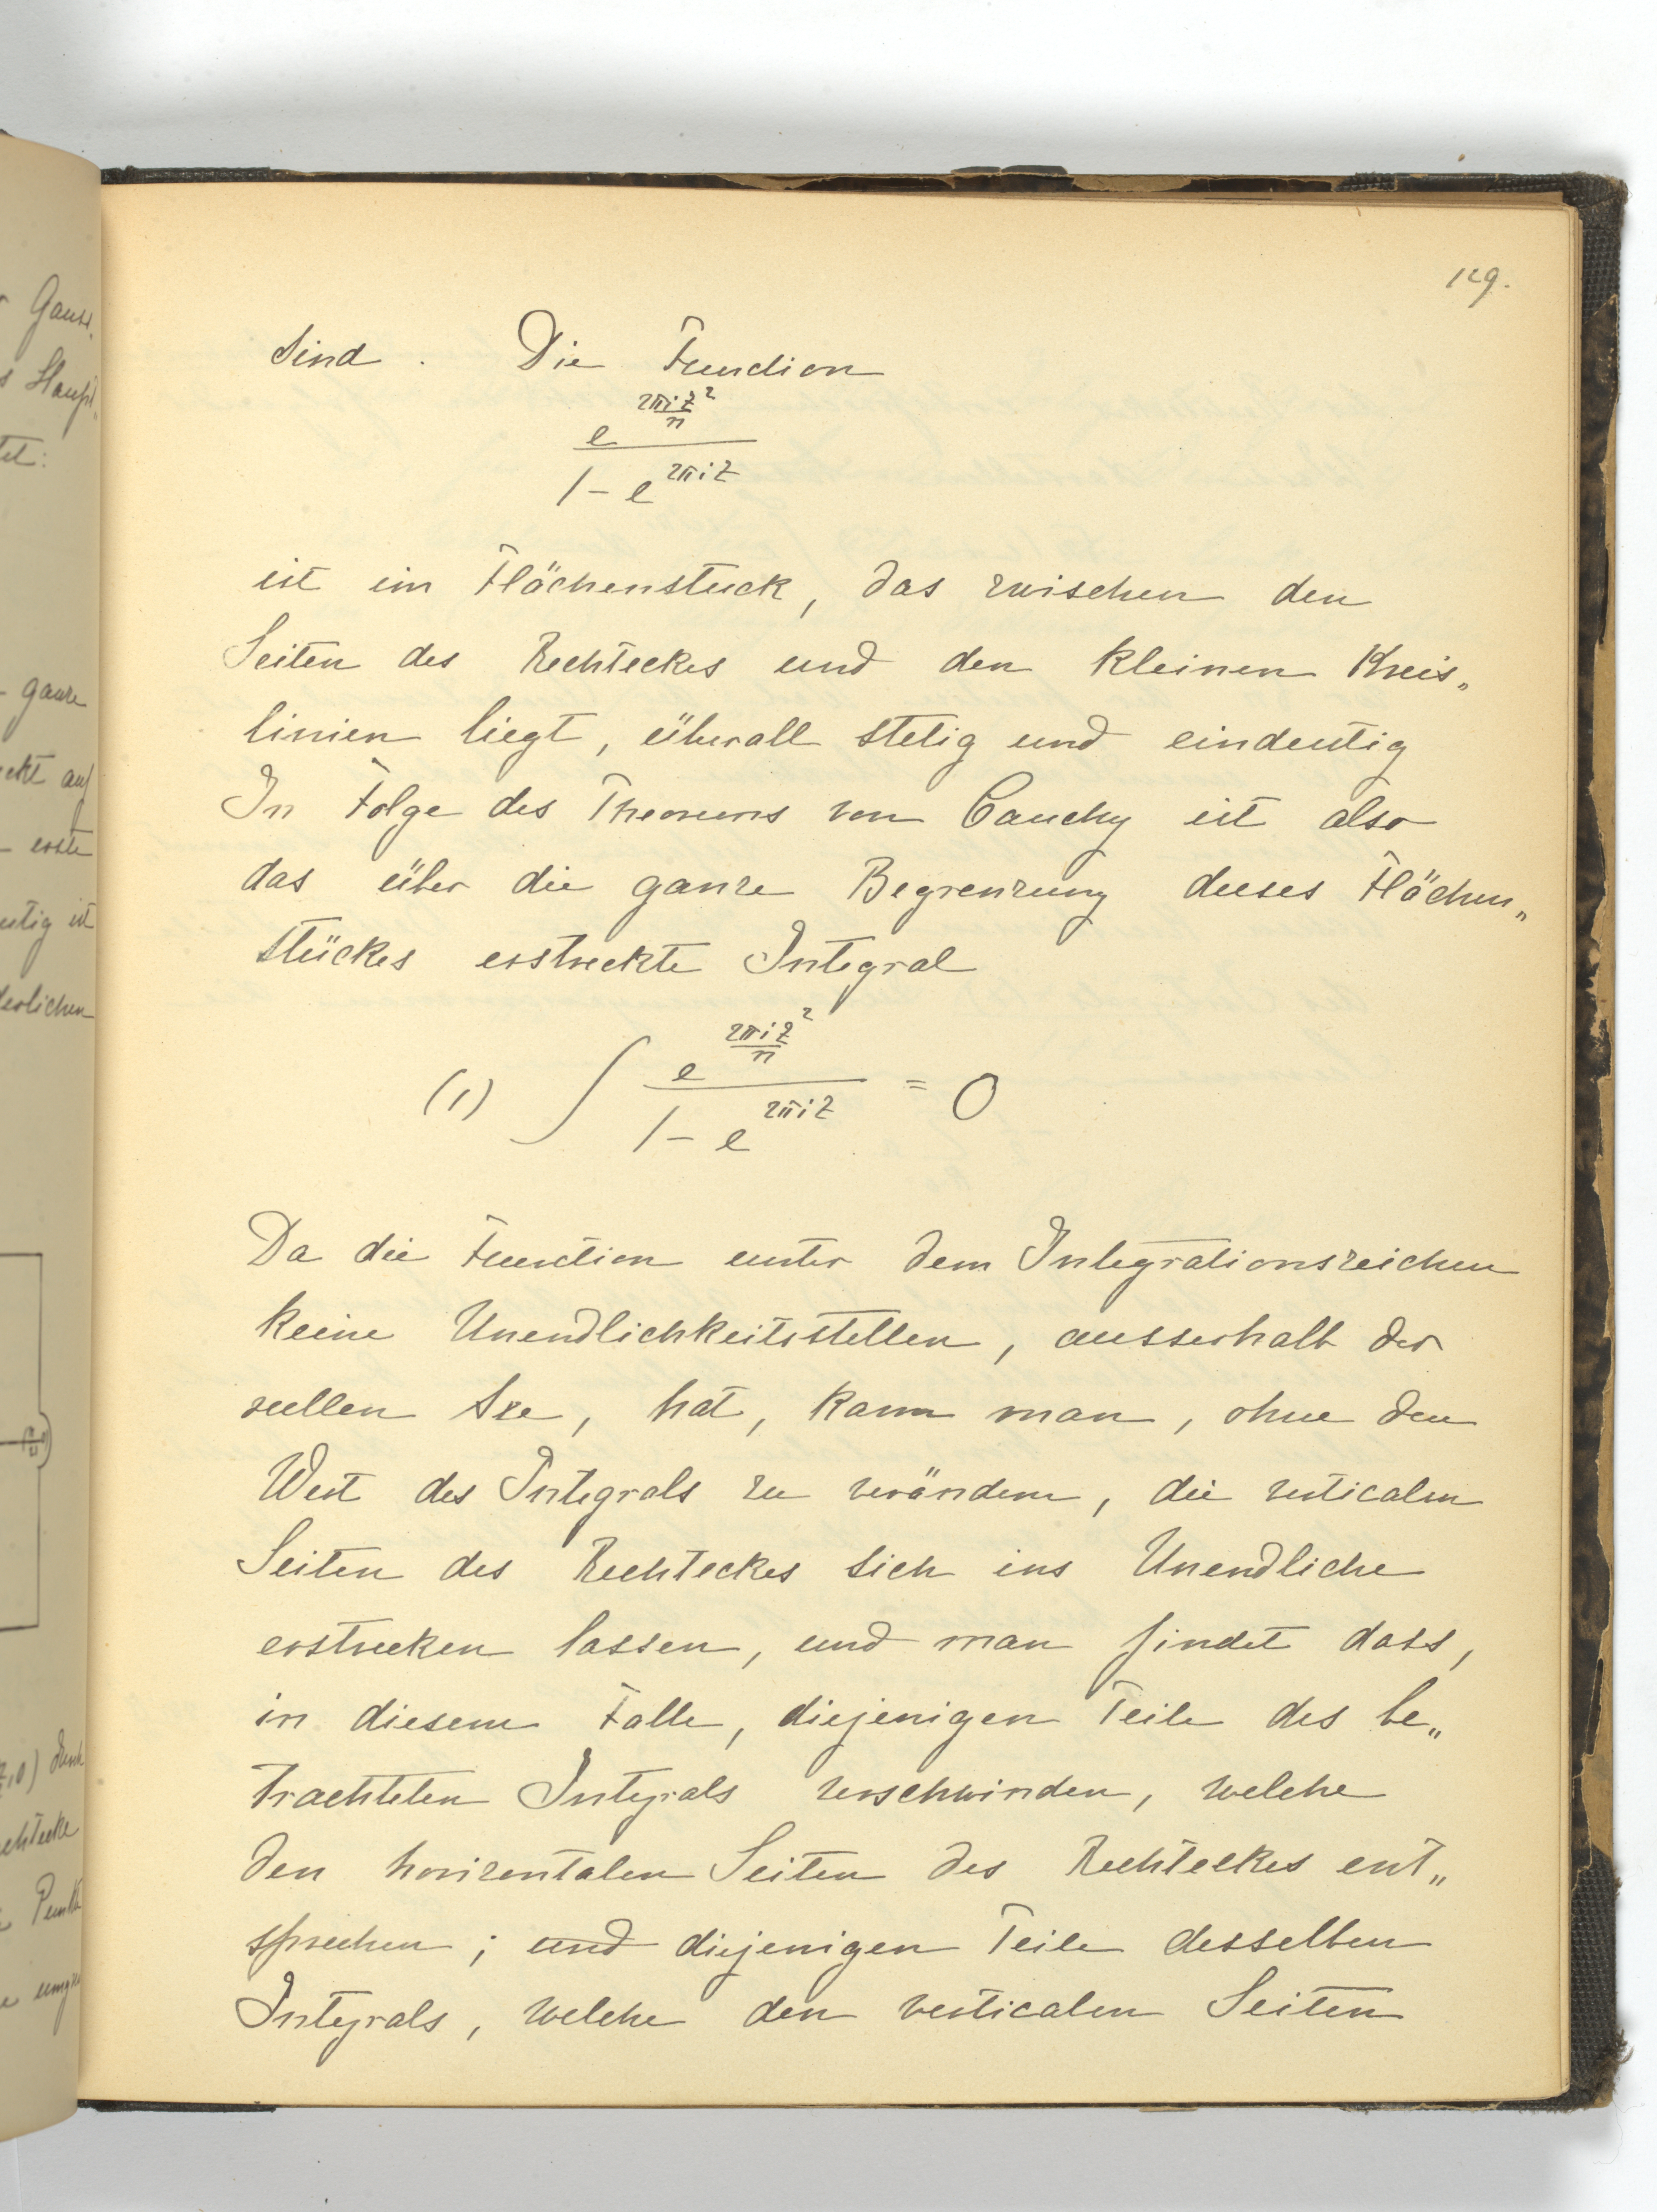 129.
sind. Die Function
e^{\frac{2πiz^2}{n}}
1 - e^{2πiz}
ist im Flächenstück, das zwischen den
Seiten des Rechteckes und den kleinen Kreis„
linien liegt, überall stetig und eindeutig
In Folge des Theorems von Cauchy ist also
das über die ganze Begrenzung dieses Flächen„
stückes erstreckte Integral
(1) ∫ \frac{e^{\frac{2πiz^2}{n}}}{1 - e^{2πiz}} = 0
Da die Function unter dem Integrationszeichen
keine Unendlichkeitsstellen, ausserhalb der
reellen Axe, hat, kann man, ohne den
Wert des Integrals zu verändern, die verticalen
Seiten des Rechteckes sich ins Unendliche
erstrecken lassen, und man findet dass,
in diesem Falle, diejenigen Teile des be„
trachteten Integrals verschwinden, welche
den horizontalen Seiten des Rechteckes ent„
sprechen; und diejenigen Teile desselben
Integrals, welche den verticalen Seiten
Gauss.
Haupt
tet:
ganze
eckt auf
erste
eutig ist
derlichen
z,0) durch
echtecke
Punkte